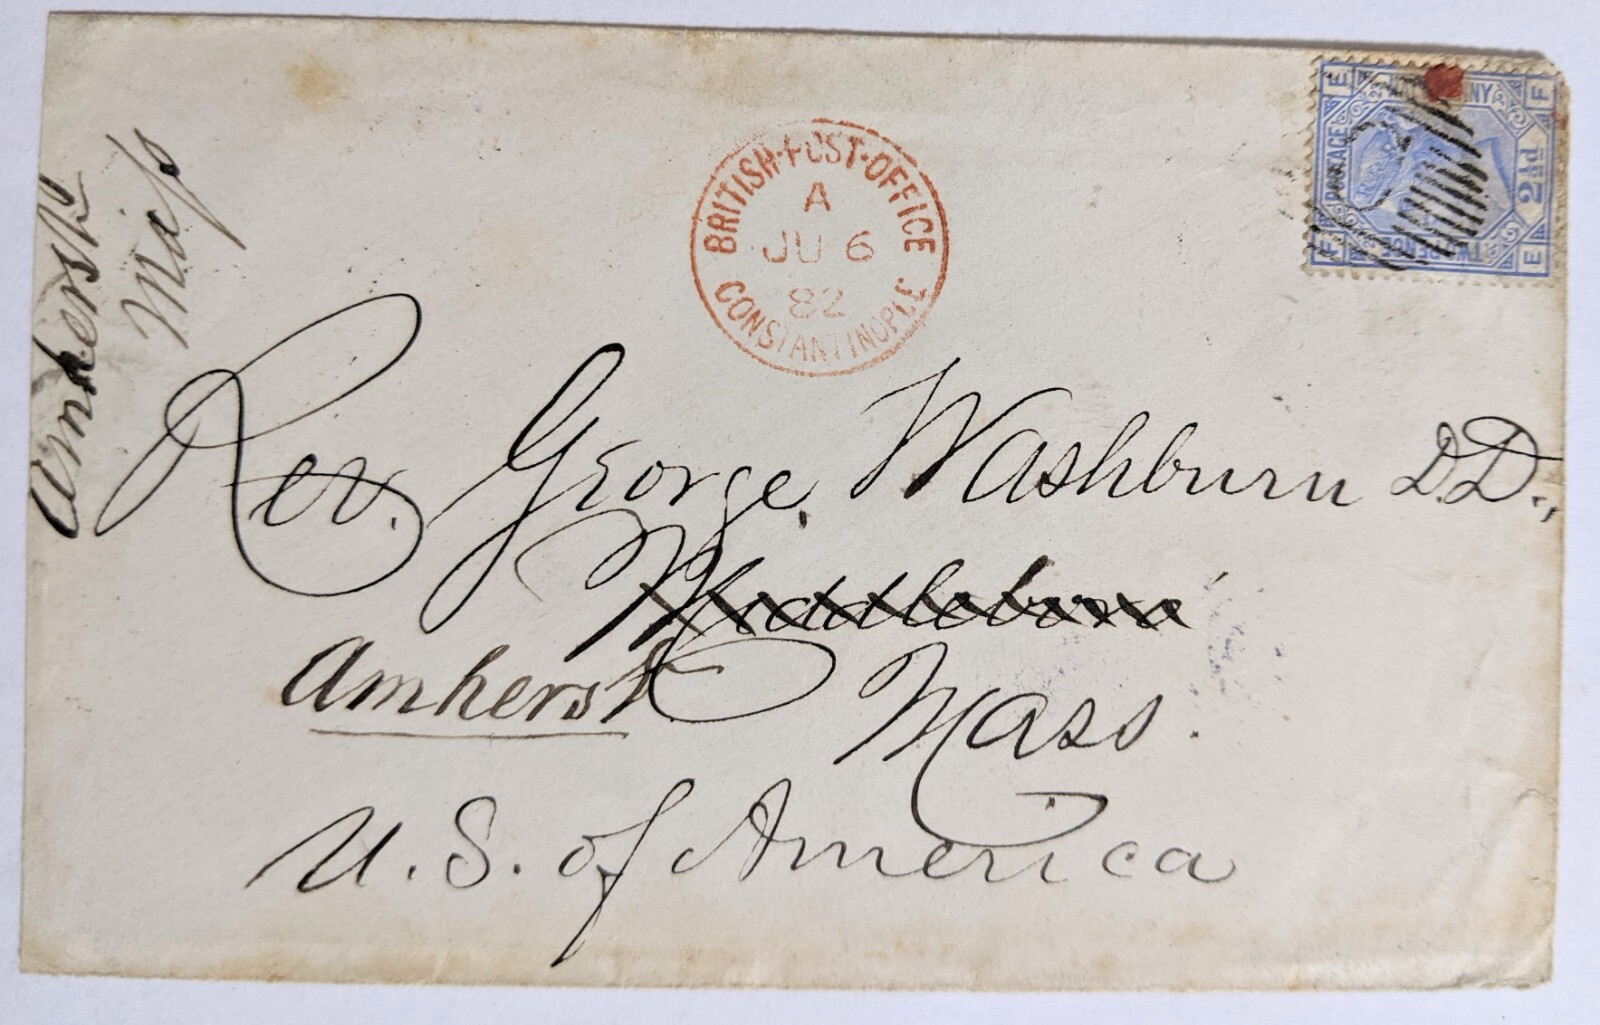 Amherst
Mass
BRITISH·POST·OFFICE
A
JU 6
82
CONSTANTINOPLE
E F
POSTAGE
2½d
F E
23
Rev. George Washburn D.D.,
Middleboro
Amherst
Mass.
U. S. of America